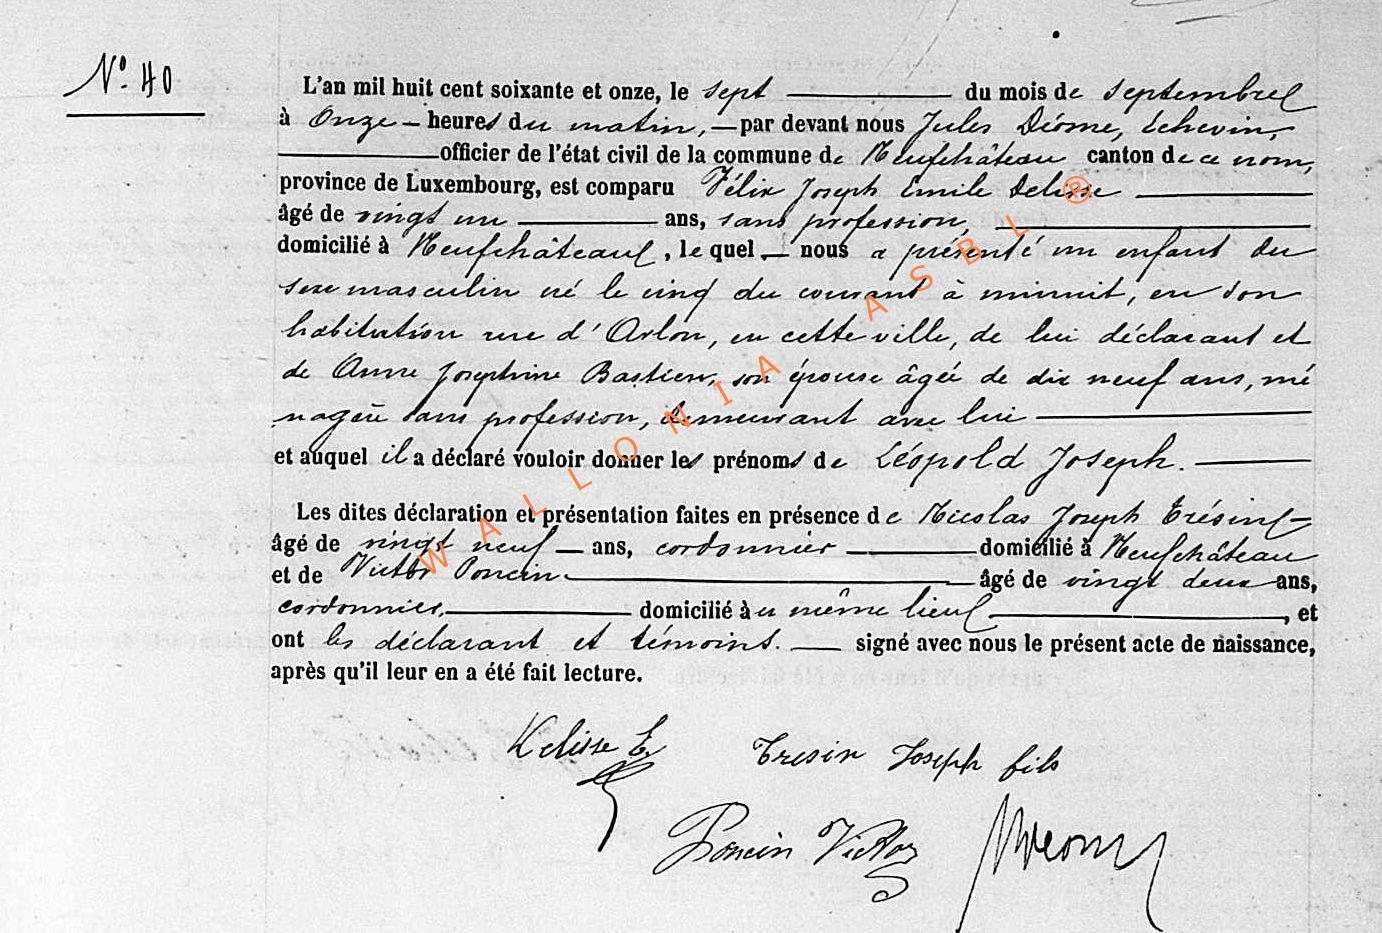 N° 40
L'an mil huit cent soixante et onze, le sept du mois de septembre
à Onze heures du matin, par devant nous Jules Déome, Echevin,
officier de l'état civil de la commune de Neufchâteau canton de ce nom,
province de Luxembourg, est comparu Félix Joseph Emile Delisse
âgé de vingt un ans, sans profession,
domicilié à Neufchâteau, le quel nous a présenté un enfant du
sexe masculin né le cinq du courant à minuit, en son
habitation rue d'Arlon, en cette ville, de lui déclarant et
de Anne Josephine Bastien, son épouse âgée de dix neuf ans, mé
nagère sans profession, demeurant avec lui
et auquel il a déclaré vouloir donner les prénoms de Léopold Joseph.
Les dites déclaration et présentation faites en présence de Nicolas Joseph Trésin
âgé de vingt neuf ans, cordonnier domicilié à Neufchâteau
et de Victor Poncin âgé de vingt deux ans,
cordonnier, domicilié au même lieu, et
ont les déclarant et témoins. signé avec nous le présent acte de naissance,
après qu'il leur en a été fait lecture.
Delisse E Tresin Joseph fils
Poncin Victor
WALLONIA ASBL ®